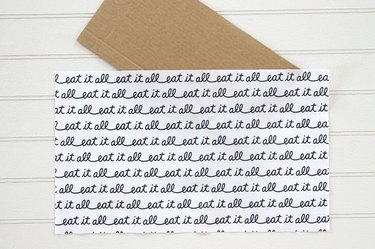 eat it all eat it all eat it all eat it all ea
eat it all eat it all eat it all eat it all
at it all eat it all eat it all eat it all eat
eat it all eat it all eat it all eat it all
eat it all eat it all eat it all eat it all
eat it all eat it all eat it all eat it all
eat it all eat it all eat it all eat it all
eat it all eat it all eat it all eat it all
eat it all eat it all eat it all eat it all
eat it all eat it all eat it all eat it all